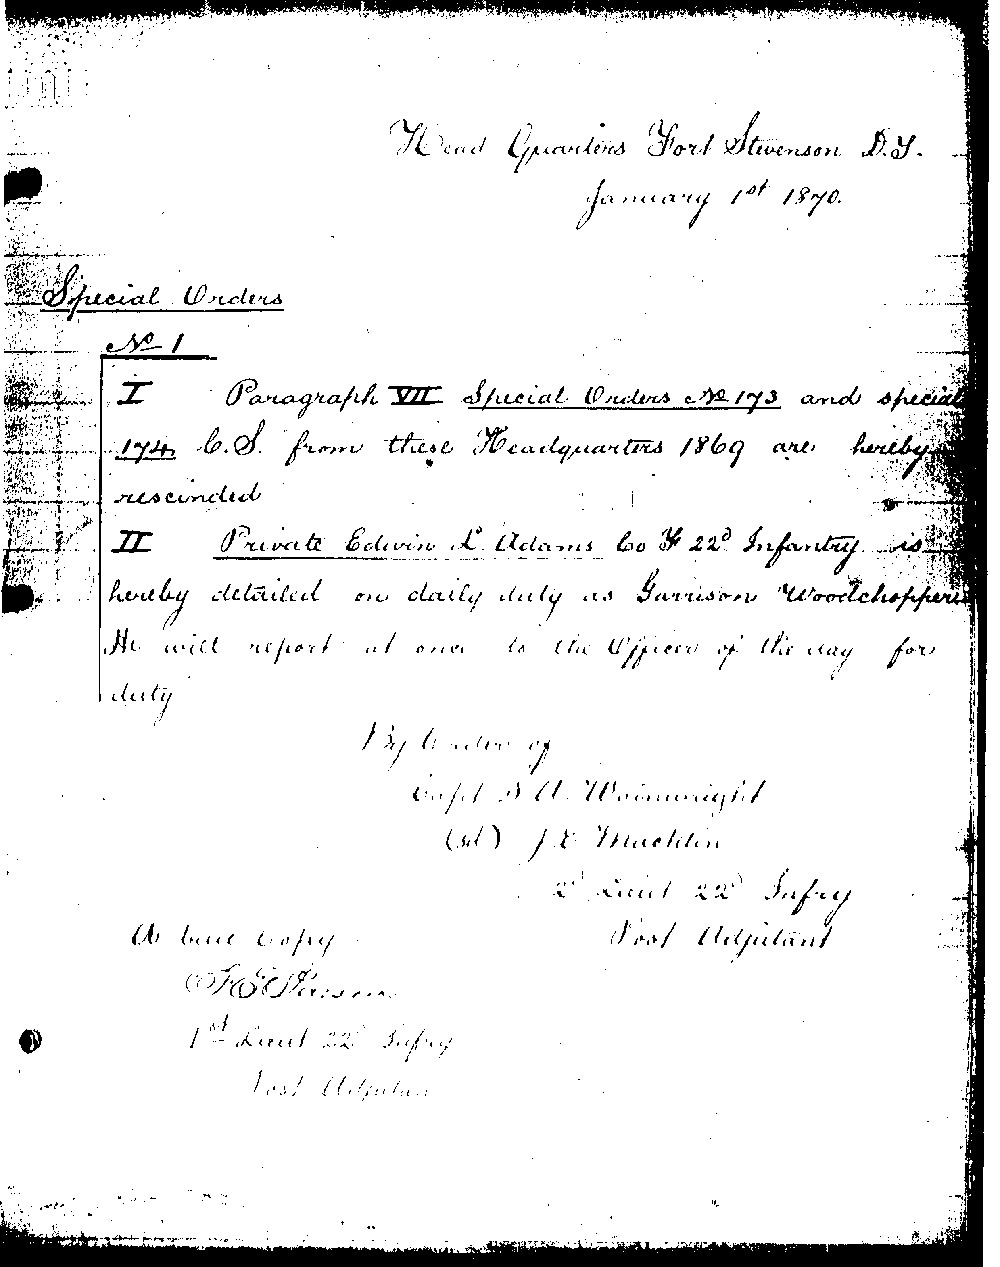 Head Quarters Fort Stevenson D.T.
January 1st 1870.
Special Orders
No 1
I Paragraph VII Special Orders No 173 and special
174 C.S. from these Headquarters 1869 are hereby
rescinded
II Private Edwin L. Adams Co F 22d Infantry is
hereby detailed on daily duty as Garrison Woodchopper
He will report at once to the Officer of the day for
duty
By order of
Capt S A. Wainwright
(sd) J E Macklin
2d Lieut 22d Infry
Post Adjutant
A true Copy
1st Lieut 22d Infry
Post Adjutan